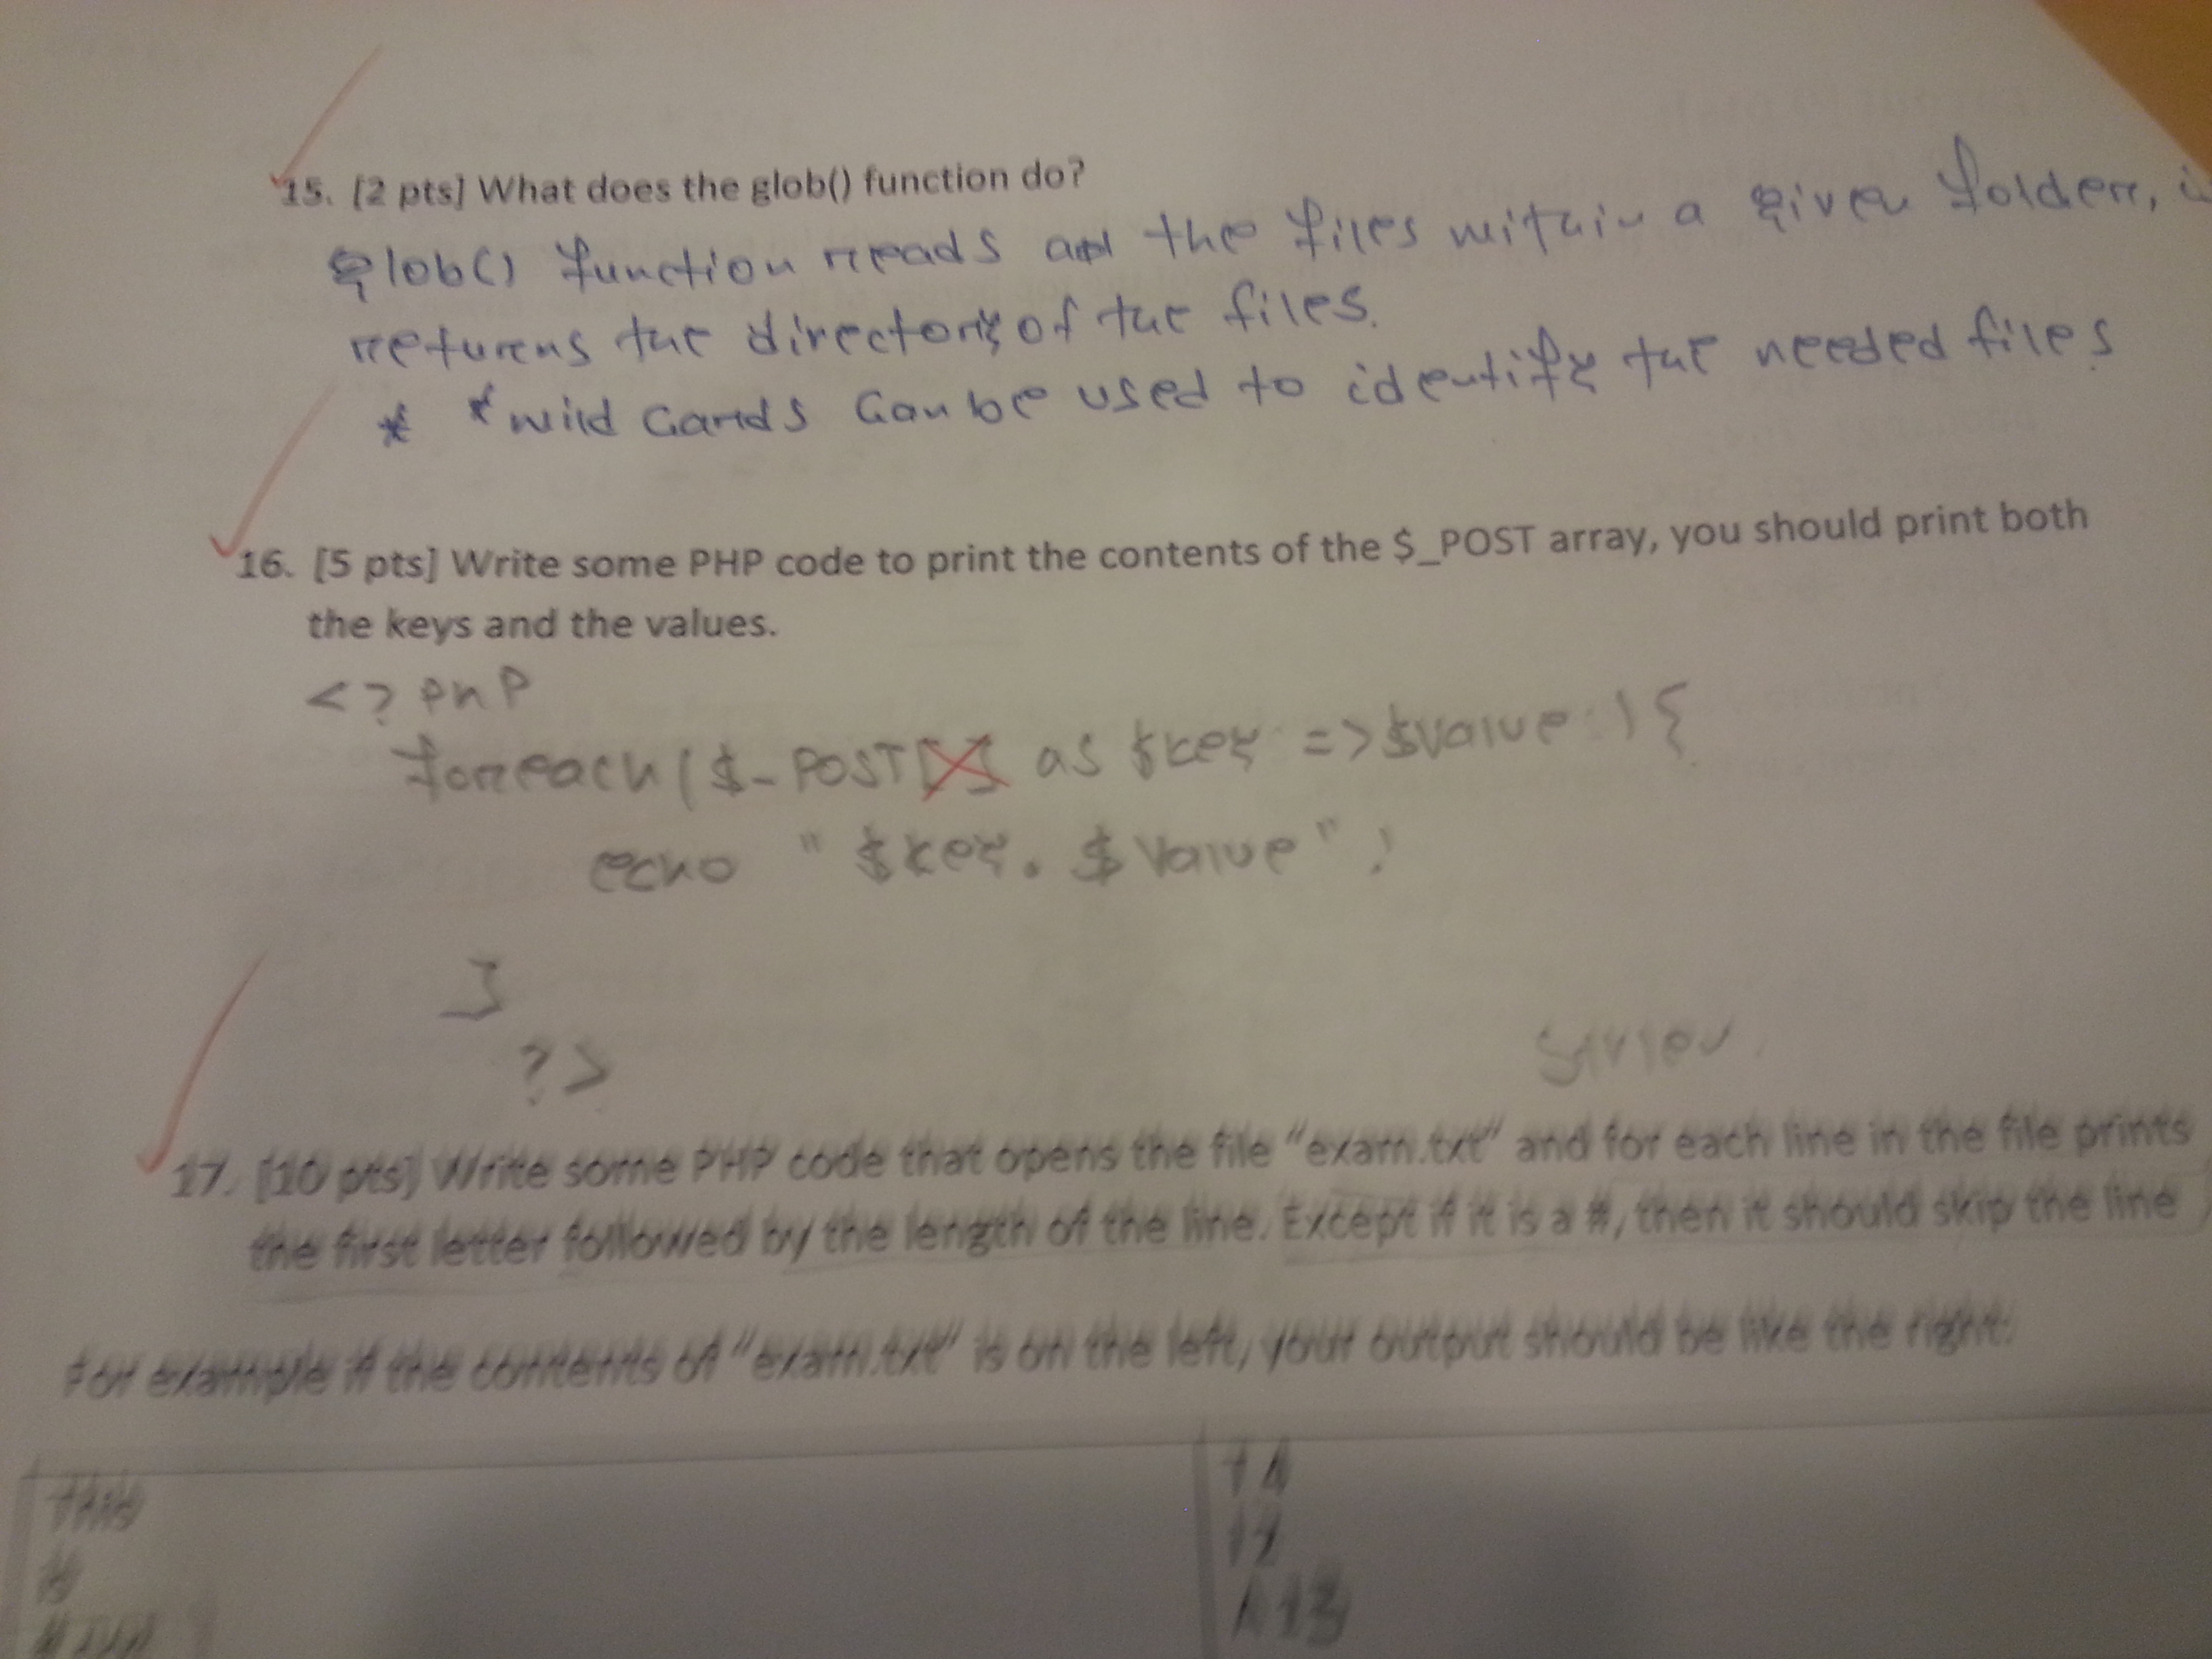 15. [2 pts] What does the glob() function do?
glob() function reads all the files within a given folder,
returns the directory of the files.
* *wild cards can be used to identify the needed files
16. [5 pts] Write some PHP code to print the contents of the $_POST array, you should print both
the keys and the values.
<? PHP
foreach ($_POST[] as $key => $value) {
echo "$key. $value";
}
?>
17. [10 pts] Write some PHP code that opens the file "exam.txt" and for each line in the file prints
the first letter followed by the length of the line. Except if it is a #, then it should skip the line
For example if the contents of "exam.txt" is on the left, your output should be like the right:
this
is